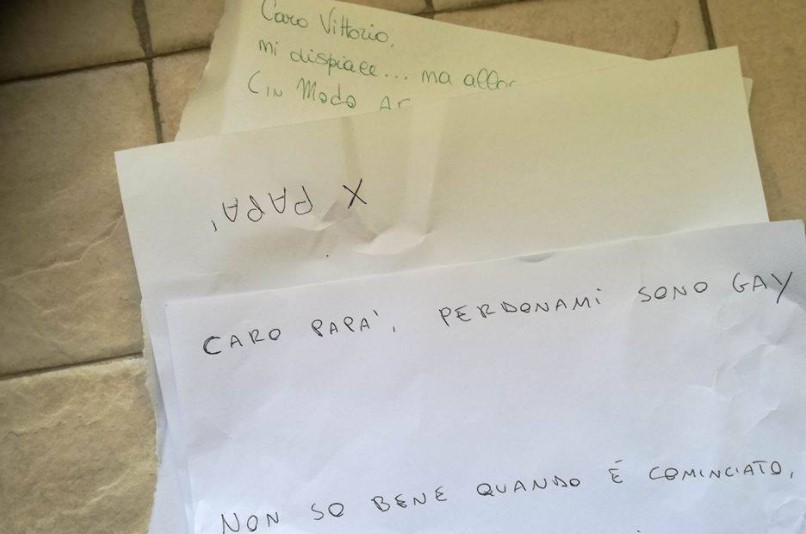 Caro Vittorio,
mi dispiace... ma
(in Modo
X PAPA'
CARO PAPA', PERDONAMI SONO GAY
NON SO BENE QUANDO È COMINCIATO,